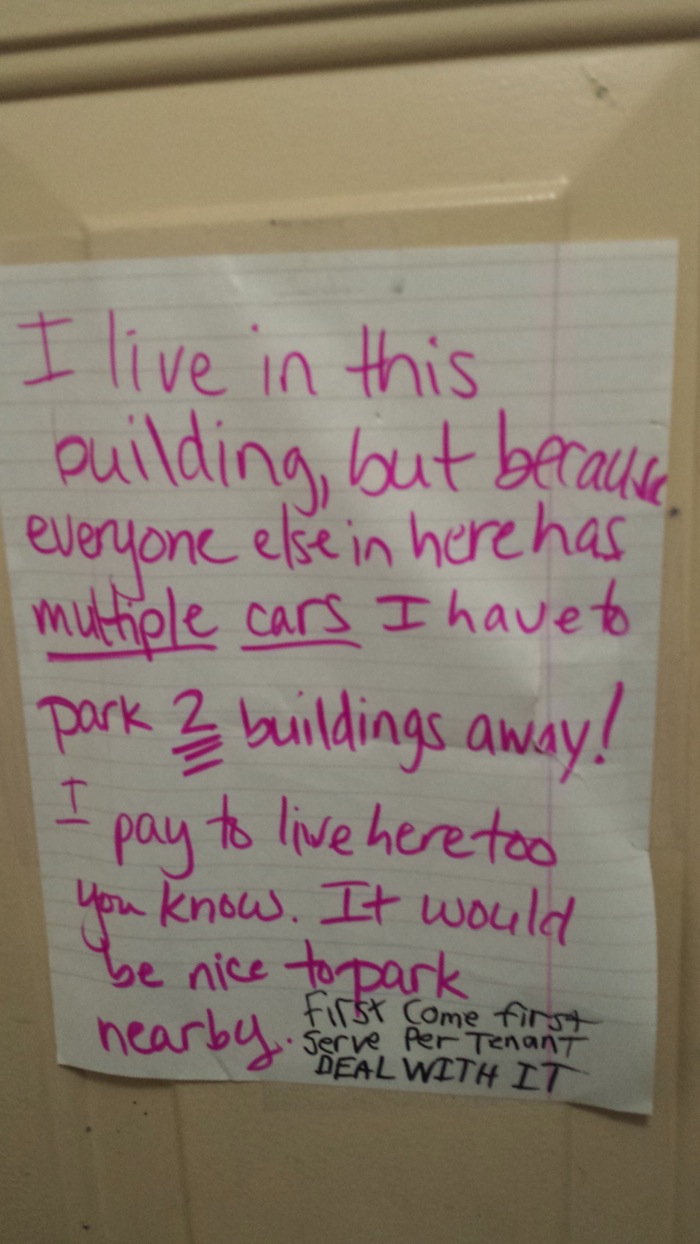 I live in this
building, but because
everyone else in here has
multiple cars I have to
park 2 buildings away!
I pay to live here too
you know. It would
be nice to park
nearby.
First Come first
Serve Per Tenant
DEAL WITH IT